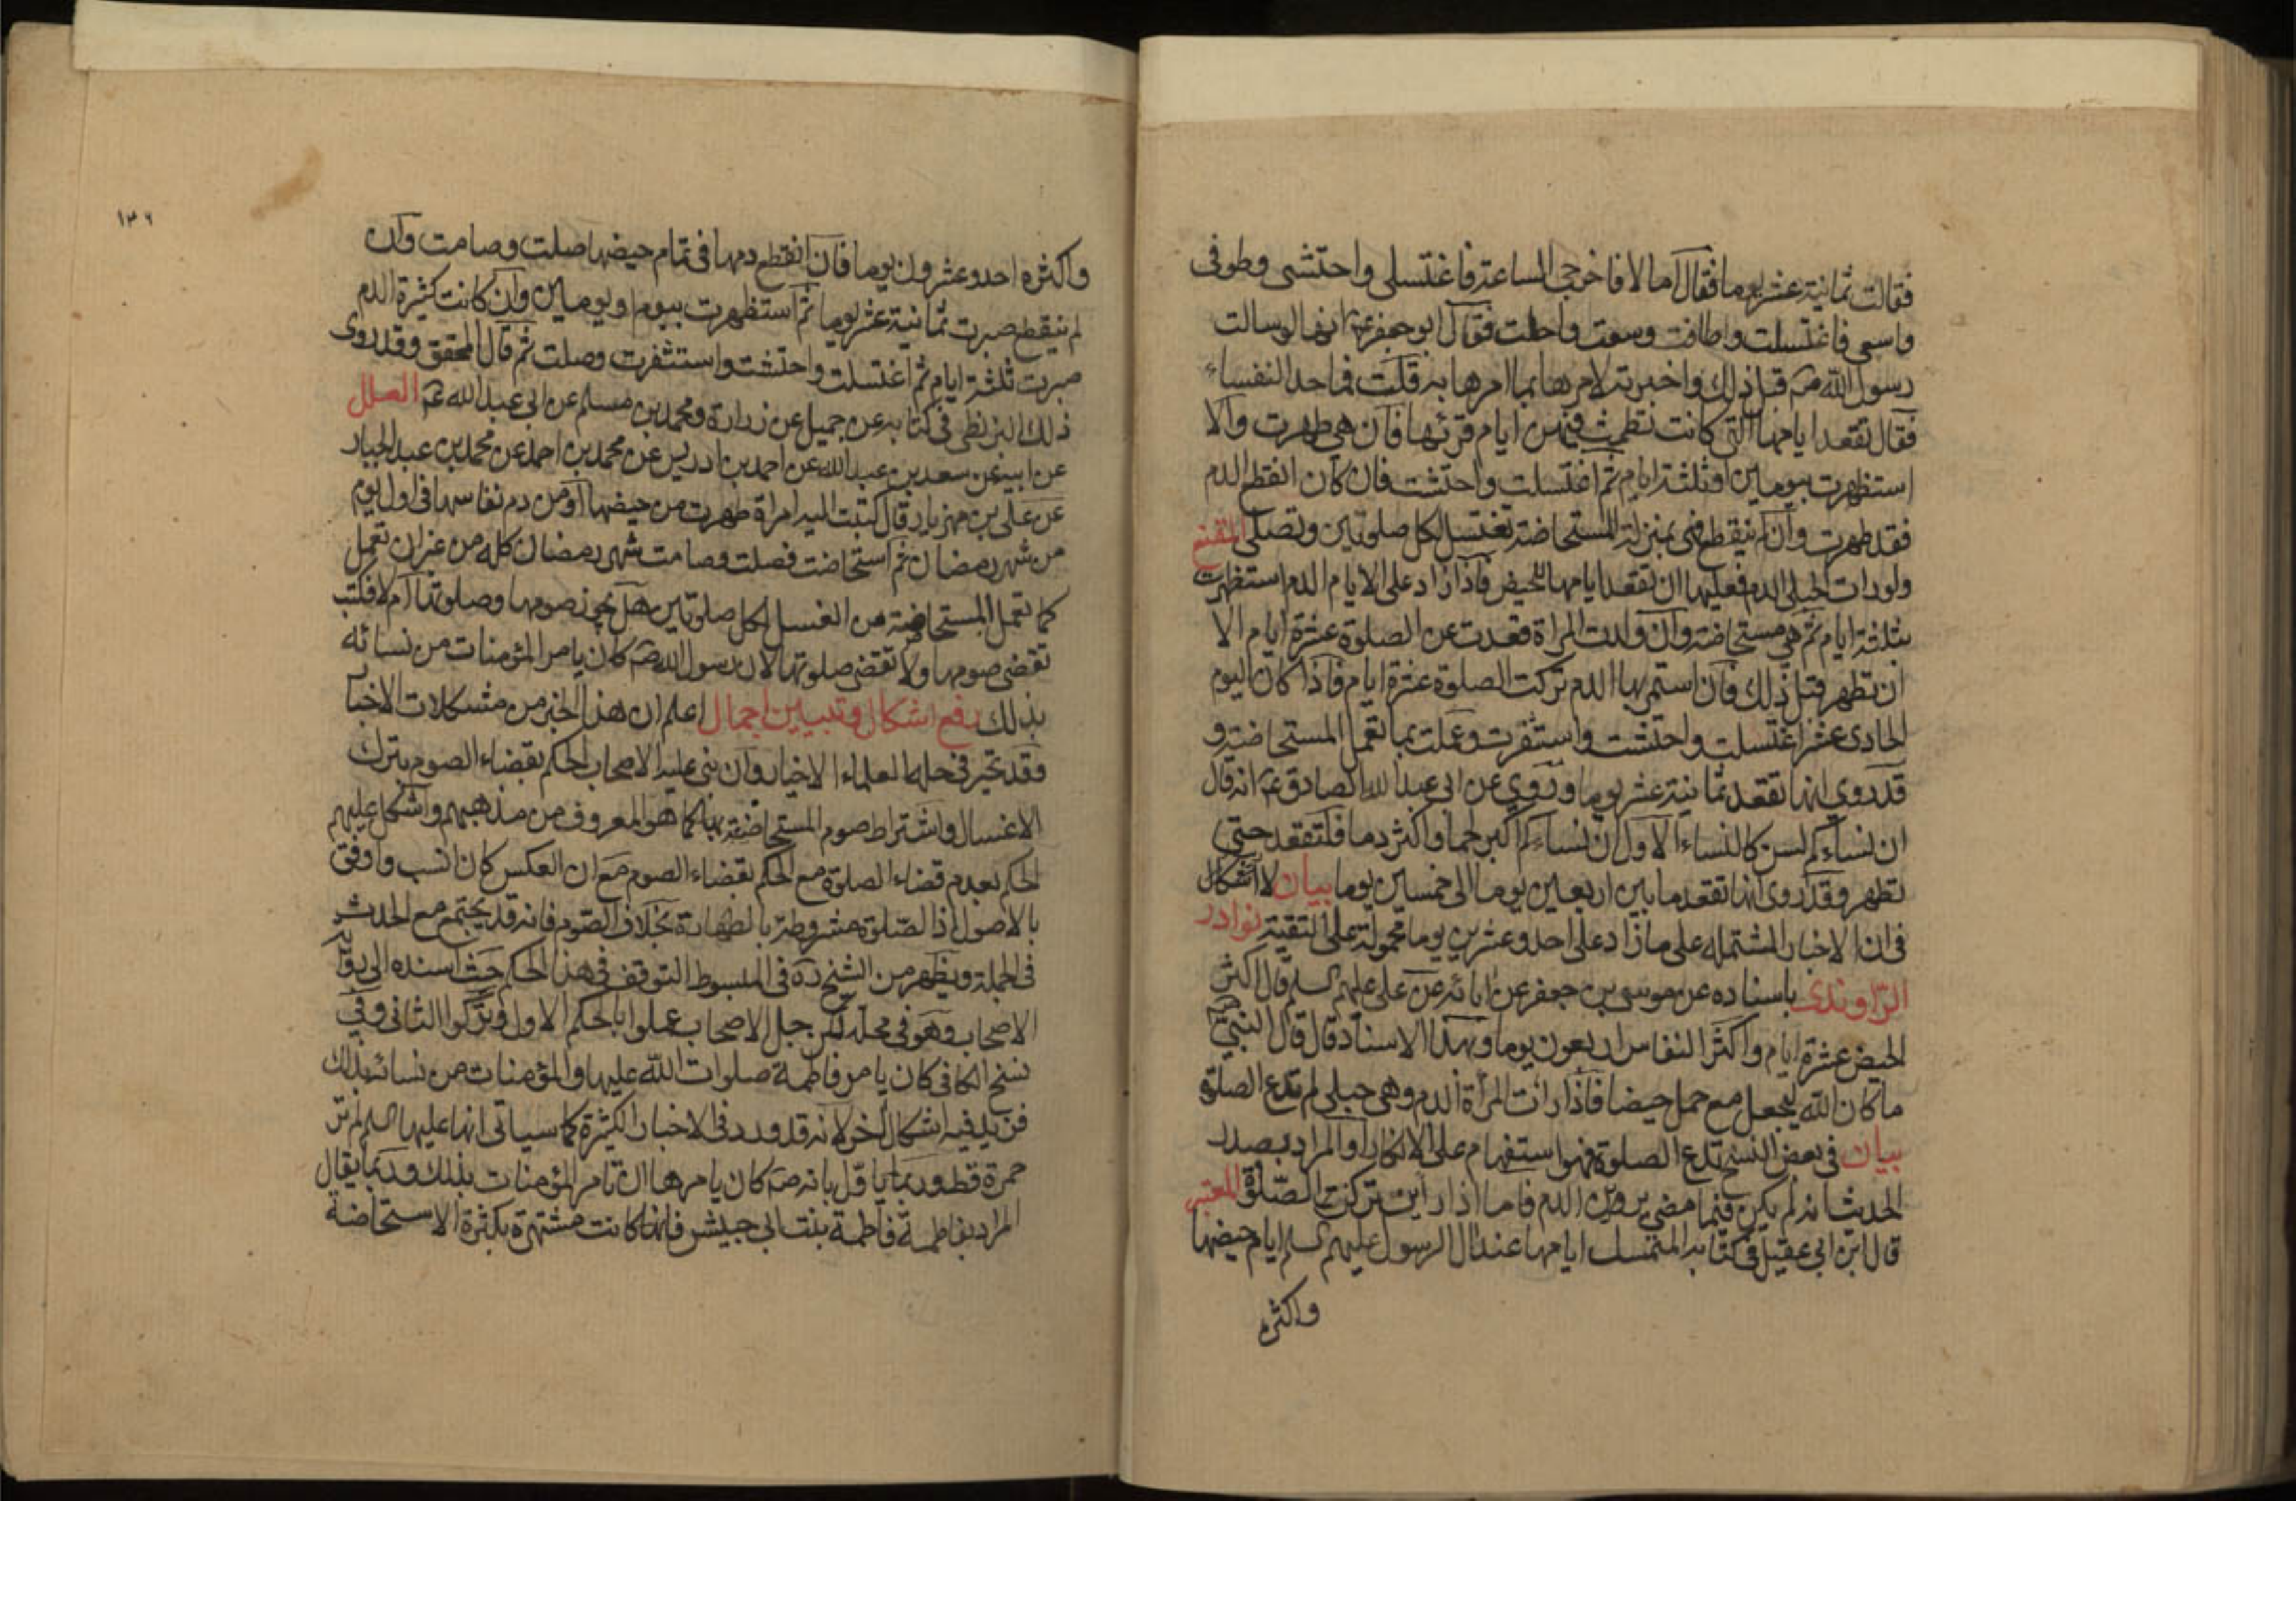 فقالت ثمانية عشر يوما فقال اما لا فاخرجي الساعة فاغتسلي واحتشي وطوفي
واسعي فاغتسلت وطافت وسعت واحلت فقال ابو جعفر ع انها لو سالت
رسول الله ص قبل ذلك واخبرته لامرها بما امرها به قلت فما حد النفساء
فقال تقعد ايامها التي كانت تطمث فيهن ايام قرئها فان هي طهرت والا
استظهرت بيومين او ثلثة ايام ثم اغتسلت واحتشت فان كان انقطع الدم
فقد طهرت وان لم ينقطع فهي بمنزلة المستحاضة تغتسل لكل صلوتين وتصلي المقنع
ولو رات الحبلى الدم فعليها ان تقعد ايامها للحيض فاذا زاد على الايام الدم استظهرت
بثلثة ايام ثم هي مستحاضة وان ولدت المراة قعدت عن الصلوة عشرة ايام الا
ان تطهر قبل ذلك فان استمر بها الدم تركت الصلوة عشرة ايام فاذا كان اليوم
الحادي عشر اغتسلت واحتشت واستثفرت وعملت بما تعمل المستحاضة و
قد روي انها تقعد ثمانية عشر يوما وروي عن ابي عبد الله الصادق ع انه قال
ان نساءكم لسن كالنساء الاول ان نساءكم اكبر لحما واكثر دما فلتقعد حتى
تطهر وقد روي انها تقعد ما بين اربعين يوما الى خمسين يوما بيان لا اشكال
في ان الاخبار المشتملة على ما زاد على احد وعشرين يوما محمولة على التقية نوادر
الراوندي باسناده عن موسى بن جعفر عن ابائه عن علي عليهم السلم قال اكثر
الحيض عشرة ايام واكثر النفاس اربعون يوما وبهذا الاسناد قال قال النبي ص
ما كان الله ليجعل مع حمل حيضا فاذا رات المراة الدم وهي حبلى لم تدع الصلوة
بيان في بعض النسخ تدع الصلوة فهو استفهام على الانكار او المراد بصدر
الحديث انه لم يكن فيما مضى الدم فاما اذا راين تركن الصلوة المعتبر
قال ابن ابي عقيل في كتابه المتمسك ايامها عند ال الرسول عليهم السلم ايام حيضها
واكثره
١٣٦
واكثره احد وعشرون يوما فان انقطع دمها في تمام حيضها صلت وصامت وان
لم ينقطع صبرت ثمانية عشر يوما ثم استظهرت بيوم او يومين وان كانت كثيرة الدم
صبرت ثلثة ايام ثم اغتسلت واحتشت واستثفرت وصلت ثم قال المحقق وقد روى
ذلك البزنطي في كتابه عن جميل عن زرارة ومحمد بن مسلم عن ابي عبد الله ع العلل
عن ابيه عن سعد بن عبد الله عن احمد بن ادريس عن محمد بن احمد عن محمد بن عبد الجبار
عن علي بن مهزيار قال كتبت اليه امراة طهرت من حيضها او من دم نفاسها في اول يوم
من شهر رمضان ثم استحاضت فصلت وصامت شهر رمضان كله من غير ان تعمل
كما تعمل المستحاضة من الغسل لكل صلوتين هل يجوز صومها وصلوتها ام لا فكتب
تقضي صومها ولا تقضي صلوتها لان رسول الله ص كان يامر المؤمنات من نسائه
بذلك رفع اشكال وتبيين اجمال اعلم ان هذا الخبر من مشكلات الاخبار
وقد تحير في حله العلماء الاخيار وان بنى عليه الاصحاب الحكم بقضاء الصوم بترك
الاغسال واشتراط صوم المستحاضة بها كما هو المعروف من مذهبهم واشكل عليهم
الحكم بعدم قضاء الصلوة مع الحكم بقضاء الصوم مع ان العكس كان انسب واوفق
بالاصول اذ الصلوة مشروطة بالطهارة بخلاف الصوم فانه قد يجتمع مع الحدث
في الجملة ويظهر من الشيخ ره في المبسوط التوقف في هذا الحكم حيث اسنده الى رواية
الاصحاب وهو في محله لكن جل الاصحاب عملوا بالحكم الاول وتركوا الثاني وفي
نسخ الكافي كان يامر فاطمة صلوات الله عليها والمؤمنات من نسائه بذلك
فيزيد فيه اشكال اخر لانه قد ورد في الاخبار الكثيرة كما سياتي انها عليها السلم لم تر
حمرة قط وربما ياول بانه ص كان يامرها ان تامر المؤمنات بذلك وربما يقال
المراد بفاطمة فاطمة بنت ابي حبيش فانها كانت مشتهرة بكثرة الاستحاضة